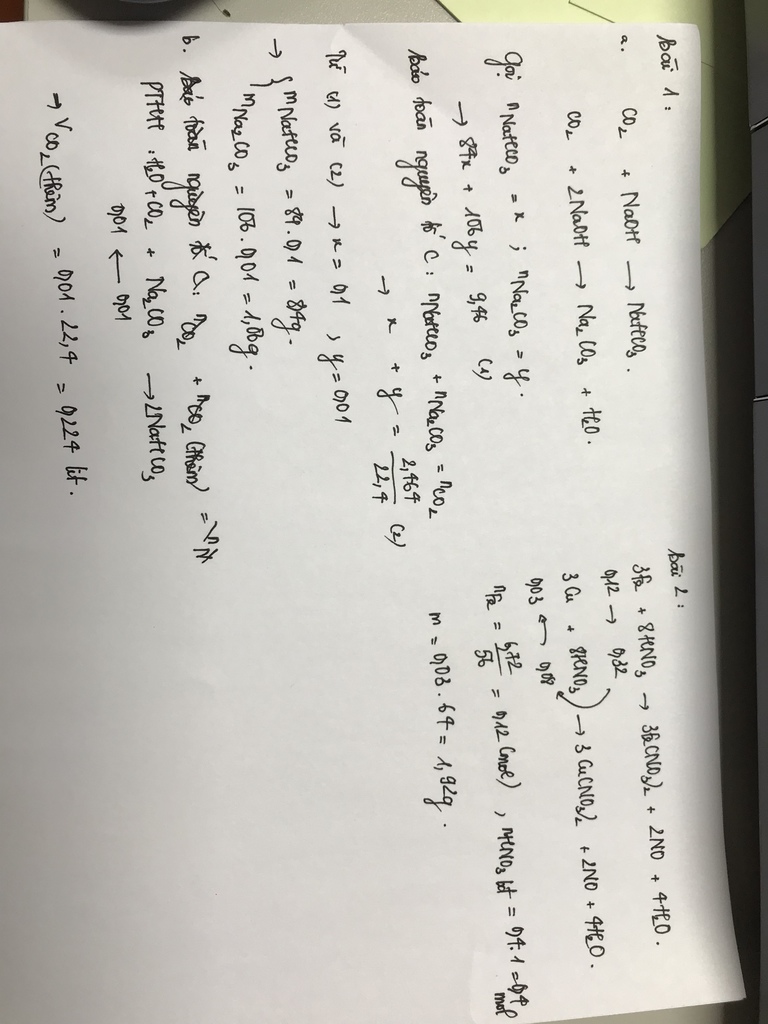 Bài 1:
a. CO₂ + NaOH → NaHCO₃.
CO₂ + 2NaOH → Na₂CO₃ + H₂O.
Gọi nNaHCO₃ = x ; nNa₂CO₃ = y.
→ 84x + 106y = 9,46 (1)
Bảo toàn nguyên tố C: nNaHCO₃ + nNa₂CO₃ = nCO₂
→ x + y = 2,464/22,4 (2)
Từ (1) và (2) → x = 0,1 , y = 0,01
→ { mNaHCO₃ = 84.0,1 = 8,4g.
mNa₂CO₃ = 106.0,01 = 1,06g.
b. Bảo toàn nguyên tố C: nCO₂ + nCO₂ (thêm) =
PTHH: H₂O + CO₂ + Na₂CO₃ → 2NaHCO₃
0,01 ← 0,01
⇒ VCO₂ (thêm) = 0,01.22,4 = 0,224 lít.
Bài 2:
3Fe + 8HNO₃ → 3Fe(NO₃)₂ + 2NO + 4H₂O.
0,12 → 0,32
3Cu + 8HNO₃ → 3Cu(NO₃)₂ + 2NO + 4H₂O.
0,03 ← 0,08
nFe = 6,72/56 = 0,12 (mol) , nHNO₃ bđ = 0,4.1 = 0,4 mol
m = 0,03.64 = 1,92g.